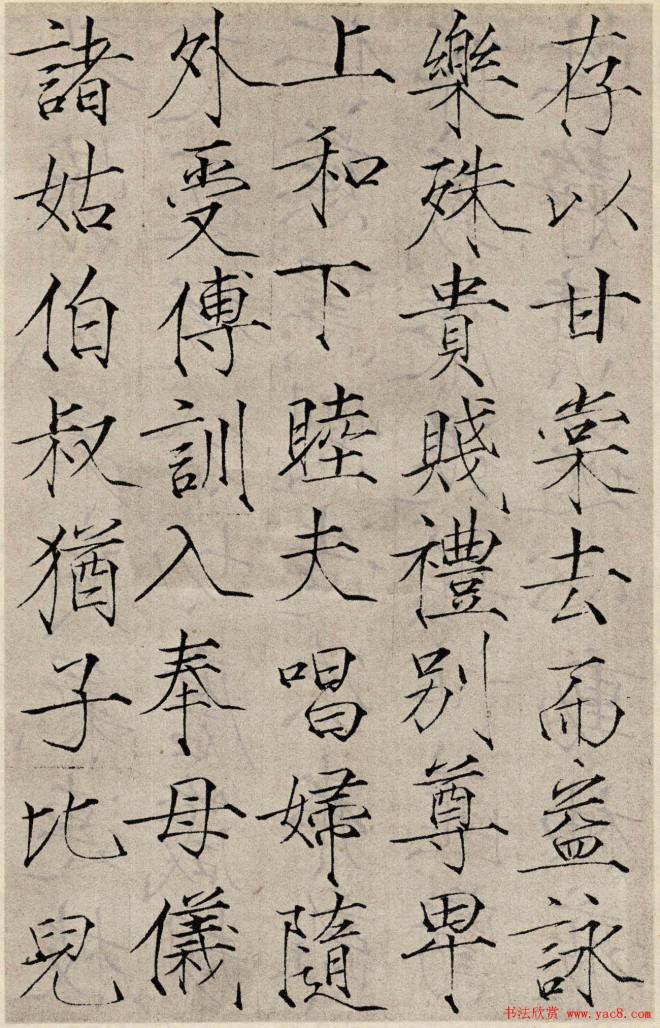 存以甘棠去而益詠
樂殊貴賤禮別尊卑
上和下睦夫唱婦隨
外受傅訓入奉母儀
諸姑伯叔猶子比兒
书法欣赏 www.yac8.com